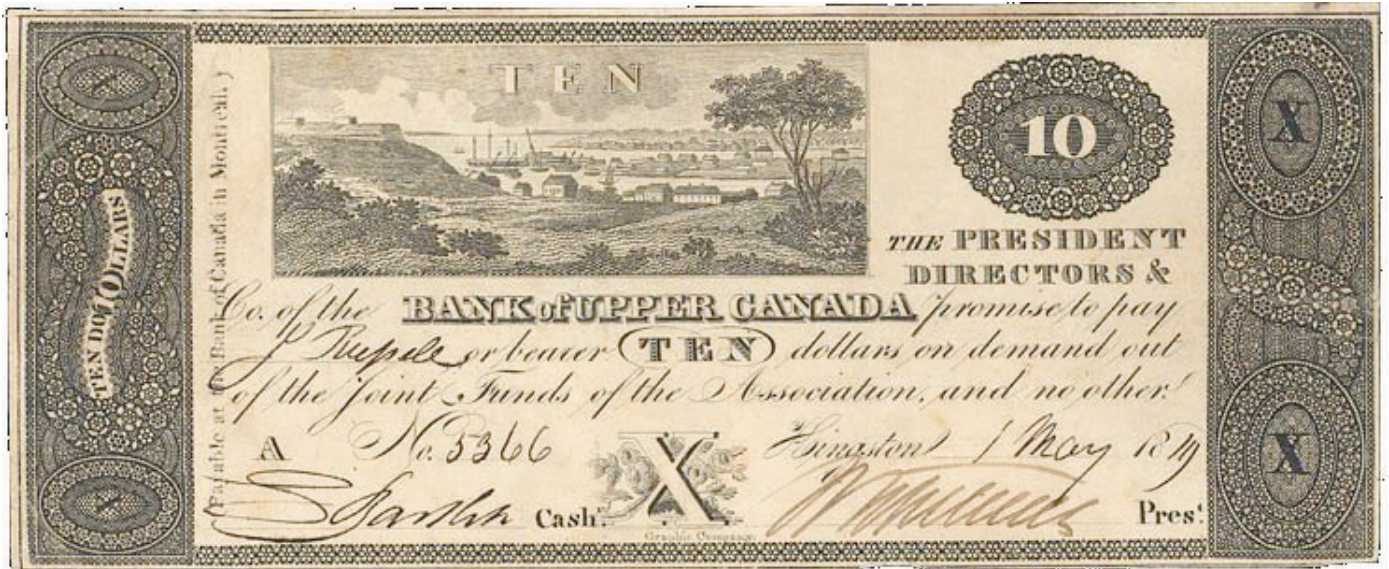 TEN
10
X
X
TEN DO 10 OLLARS
(Payable at the Bank of Canada in Montreal.)
THE PRESIDENT
DIRECTORS &
Co. of the BANK of UPPER CANADA promise to pay
or bearer TEN dollars on demand out
of the Joint Funds of the Association, and no other.
A No. 5366 Kingston 1 May 1819
X
X
S Bartlet Cash.r Pres.t
Graphic Company
X
X